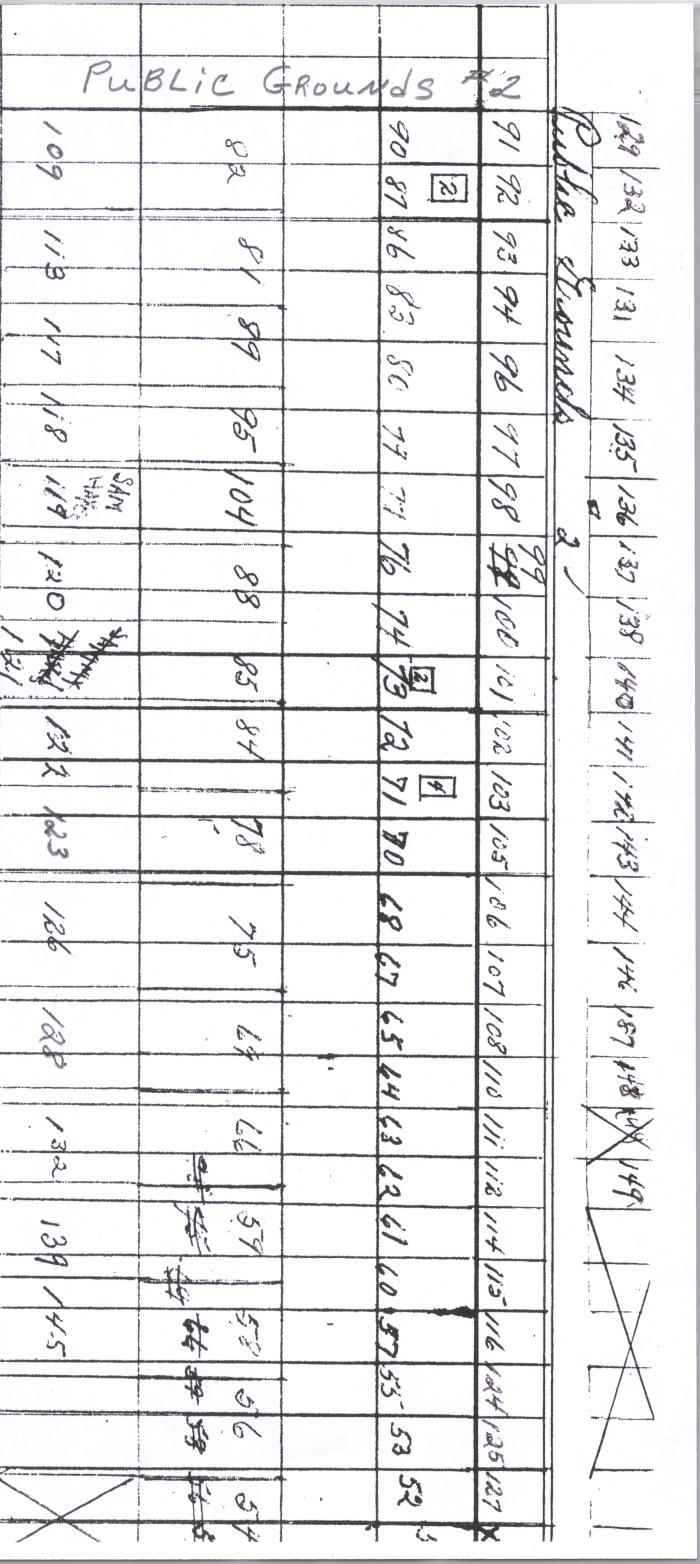 PUBLIC GROUNDS #2
129 132 133 131 134 135 136 137 138 140 141 142 143 144 146 157 148 149
Public Grounds #2
91 92 93 94 96 97 98 99 100 101 102 103 105 106 107 108 110 111 112 114 115 116 124 125 127 X
2 2 4
90 87 86 83 80 79 77 76 74 73 72 71 70 68 67 65 64 63 62 61 60 57 55 53 52
82 81 89 95 104 88 85 84 78 75 69 66 59 58 56 54
SAM HAYS
109 113 117 118 119 120 121 122 123 126 128 132 139 145